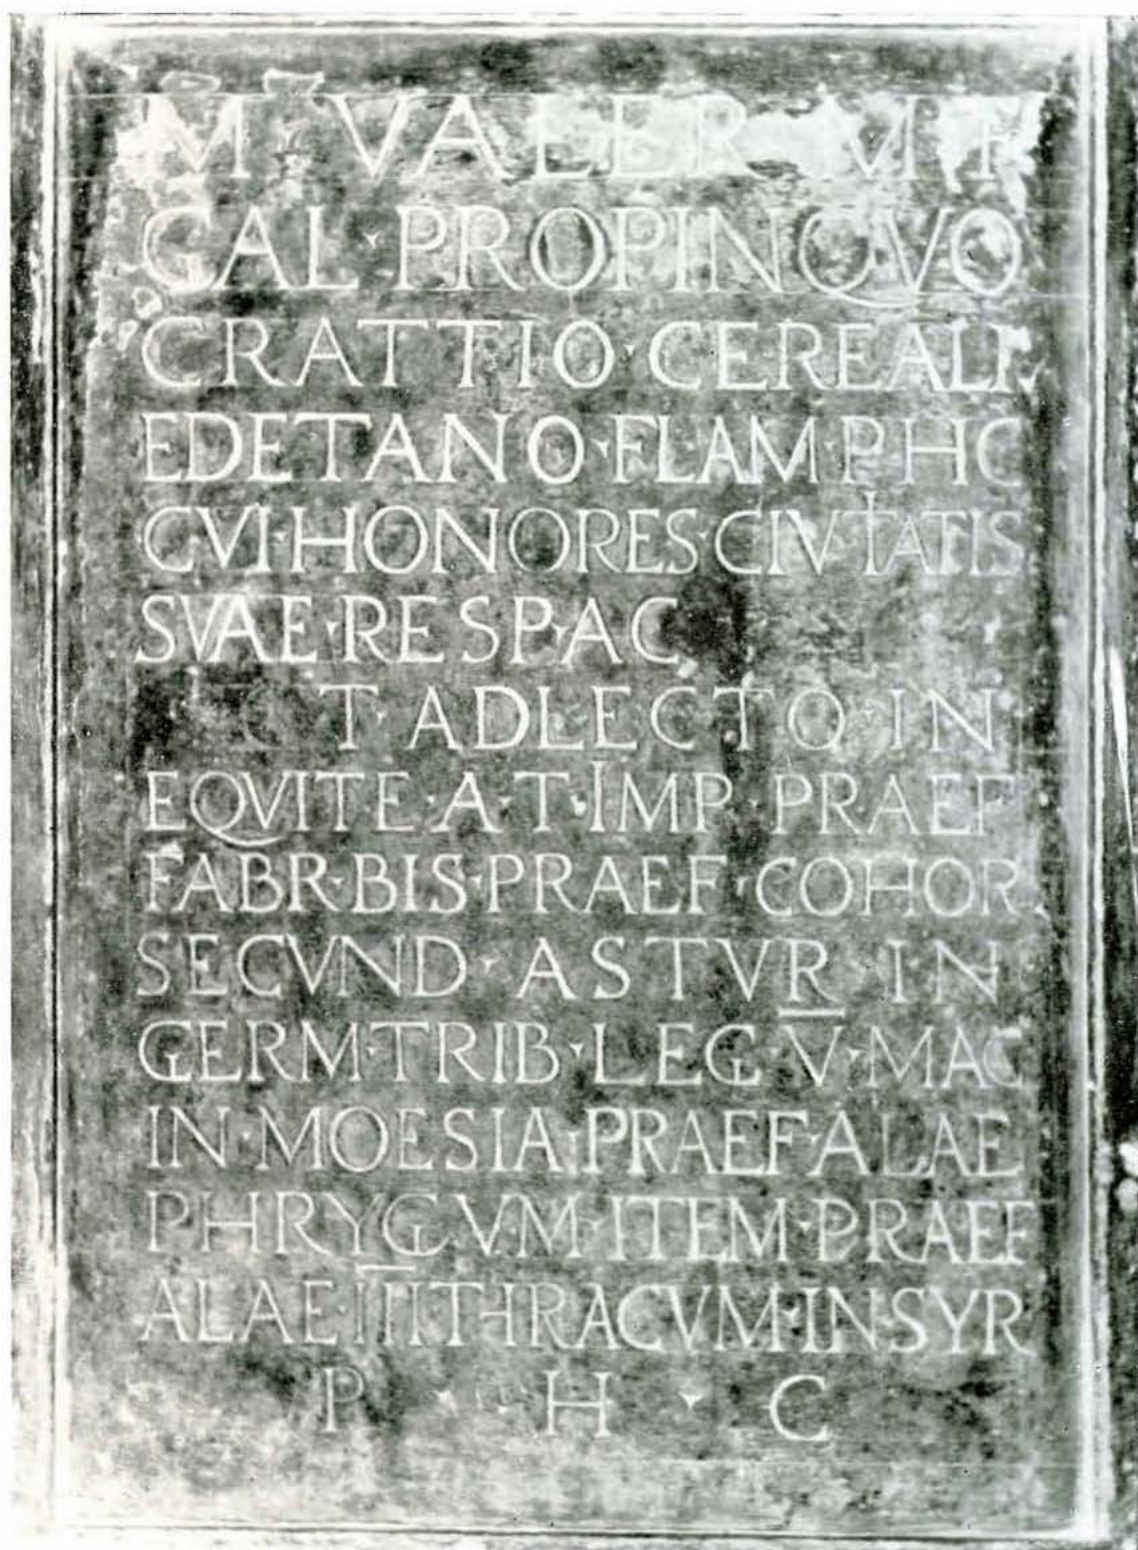 M · VALER · M · F
GAL · PROPINQVO
GRATTIO · CEREALI ·
EDETANO · FLAM · P H C
CVI · HONORES · CIVITATIS
SVAE · RES · P · AC
T · ADLECTO · IN
EQVITE · A · T · IMP · PRAEF
FABR · BIS · PRAEF · COHOR
SECVND · ASTVR · IN
GERM · TRIB · LEG · V · MAC
IN · MOESIA · PRAEF · ALAE
PHRYGVM · ITEM · PRAEF
ALAE · III THRACVM · IN · SYR
P · H · C